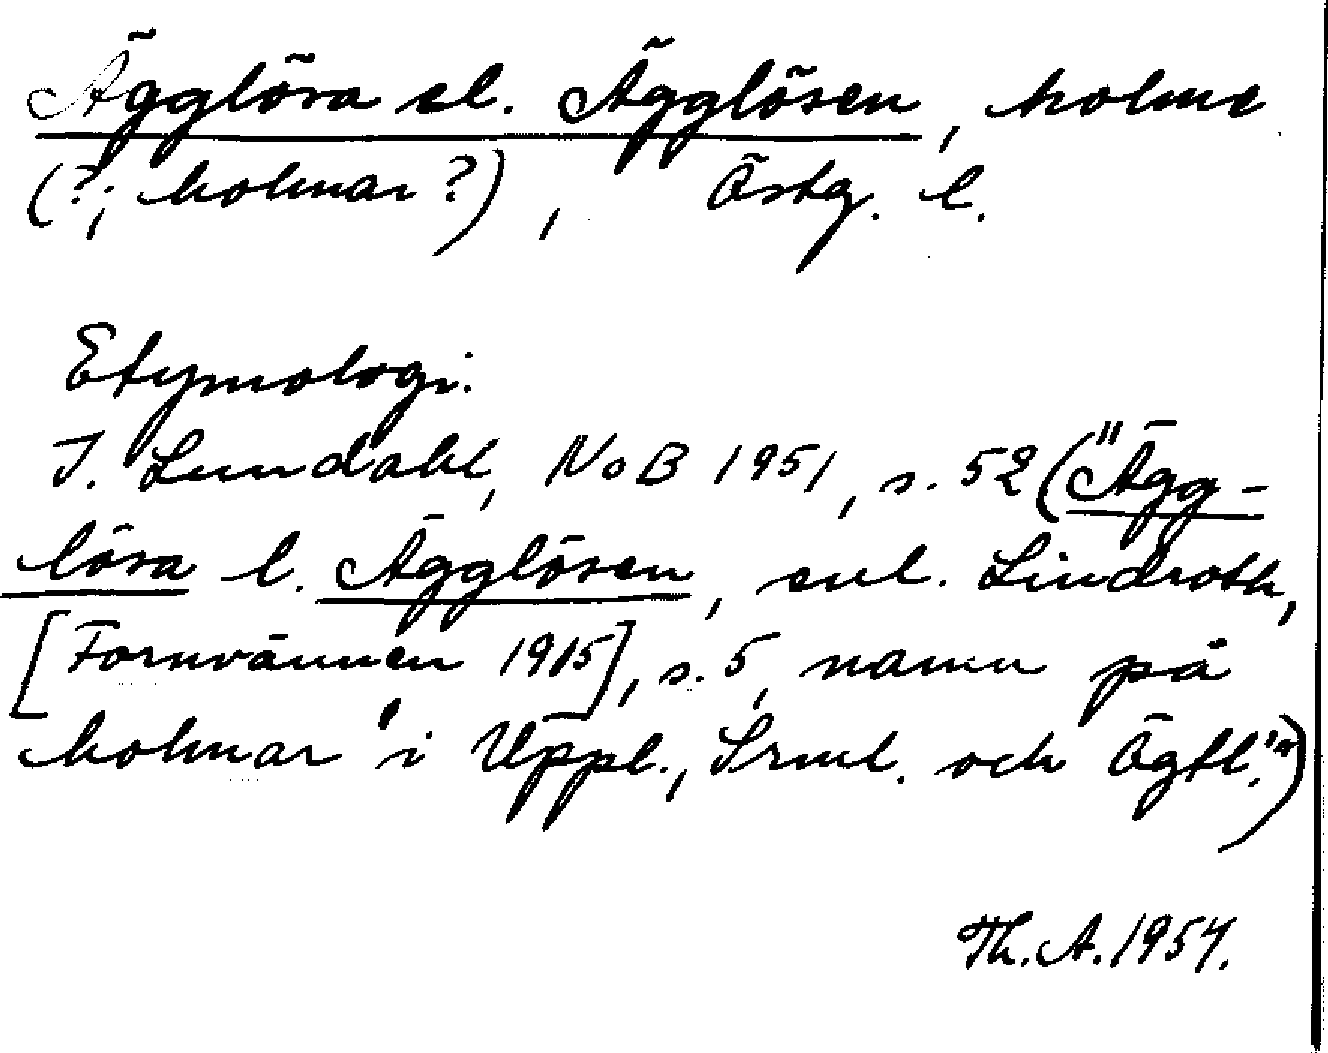 Ägglösa el. Ägglösen, holme
(?; holmar?), Östg. l.
Etymologi.
I. Lundahl, NoB 1951, s. 52 ("Ägg-
lösa l. Ägglösen, enl. Lindroth,
[Fornvännen 1915], s. 5, namn på
holmar i Uppl., Srml. och Ögtl.")
Th. A. 1954.